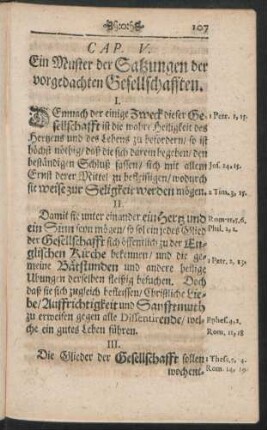 107
CAP. V.
Ein Muster der Satzungen der
vorgedachten Gesellschafften.
I.
DEmnach der einige Zweck dieser Ge-
sellschafft ist die wahre Heiligkeit des
Hertzens und des Lebens zu befordern/ so ist
höchst nötig/ daß die sich darein begeben/ den
beständigen Schluß fassen/ sich mit allem
Ernst derer Mittel zu befleissigen/ wodurch
sie weise zur Seligkeit werden mögen.
1 Petr. 1, 15.
Jos. 24. 15.
2 Tim. 3, 15.
II.
Damit sie unter einander ein Hertz und
ein Sinn seyn mögen/ so sol ein jedes Glied
der Gesellschafft sich öffentlich zu der En-
glischen Kirche bekennen/ und die ge-
meine Bätstunden und andere heilige
Ubungen derselben fleißig besuchen. Doch
daß sie sich zugleich befleissen/ Christliche Lie-
be/ Auffrichtigkeit und Sanfftmuth
zu erweisen gegen alle Dissentirende/ wel-
che ein gutes Leben führen.
Phil. 2, 2.
1 Petr. 2, 13.
Ephes. 4, 2.
Rom. 12, 18
III.
Die Glieder der Gesellschafft sollen
wöchent-
1 Thess. 5, 4.
Rom. 14, 19.